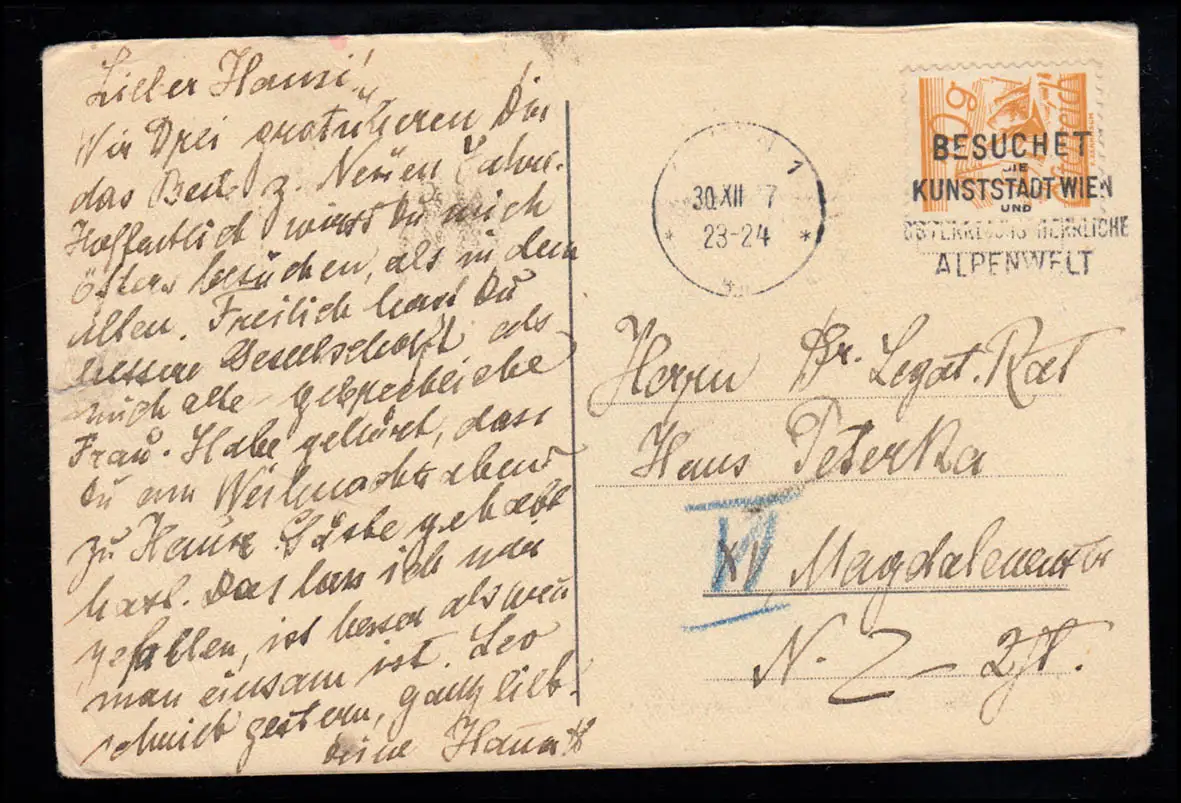 Lieber Hansi!
Wir Drei gratulieren Dir
das Beste z. Neuen Jahre.
Hoffentlich wirst Du mich
öfters besuchen, als in dem
alten. Freilich hast Du
bessere Gesellschaft als
mich alte gebrechliche
Frau. Habe gehört, dass
Du am Weihnachtsabend
zu Hause Gäste gehabt
hast. Das lass ich mir
gefallen, ist besser als wenn
man einsam ist. Leo
schrieb gestern, ganz lieb.
Deine
30 XII 7
23-24
1
BESUCHET
DIE
KUNSTSTADT WIEN
UND
ÖSTERREICHS HERRLICHE
ALPENWELT
Herrn Dr. Legat. Rat
Hans Peterka
VI
XII Magdalenenstr
N. Z